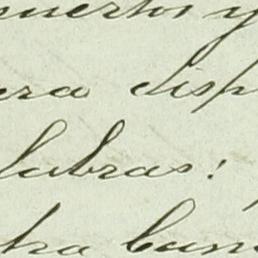 muertos y
era disp
labras:
tra ban